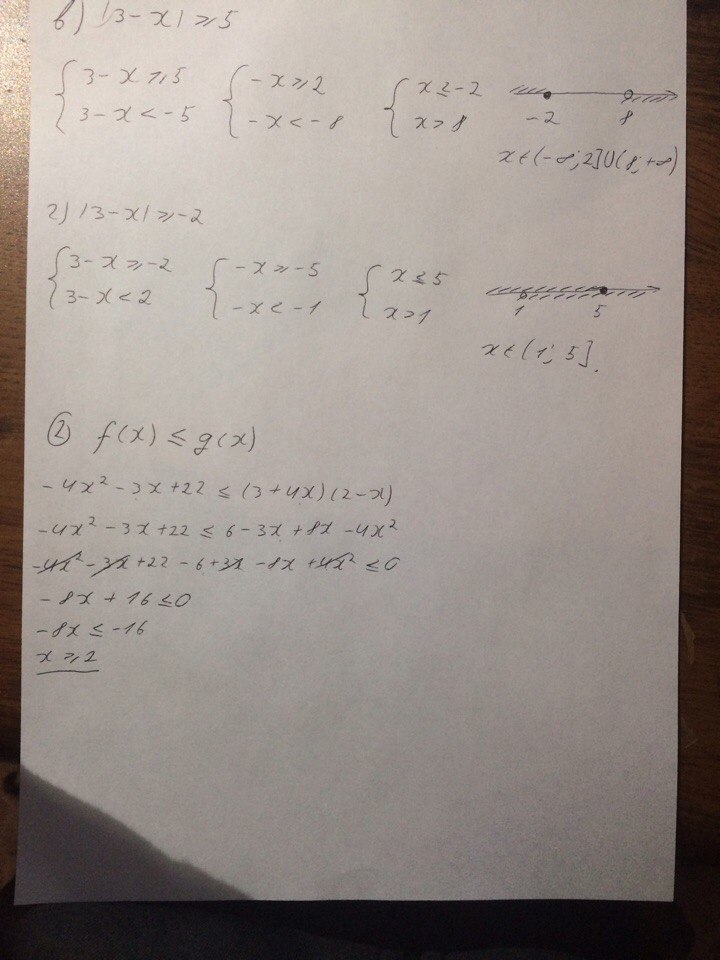 в) |3-x| ≥ 5
{ 3-x ≥ 5 { -x ≥ 2 { x ≤ -2
3-x < -5 -x < -8 x > 8
-2 8
x ∈ (-∞; 2] ∪ (8; +∞)
г) |3-x| ≥ -2
{ 3-x ≥ -2 { -x ≥ -5 { x ≤ 5
3-x < 2 -x < -1 x > 1
1 5
x ∈ (1; 5].
② f(x) ≤ g(x)
-4x² - 3x + 22 ≤ (3+4x)(2-x)
-4x² - 3x + 22 ≤ 6 - 3x + 8x - 4x²
-4x² - 3x + 22 - 6 + 3x - 8x + 4x² ≤ 0
-8x + 16 ≤ 0
-8x ≤ -16
x ≥ 2